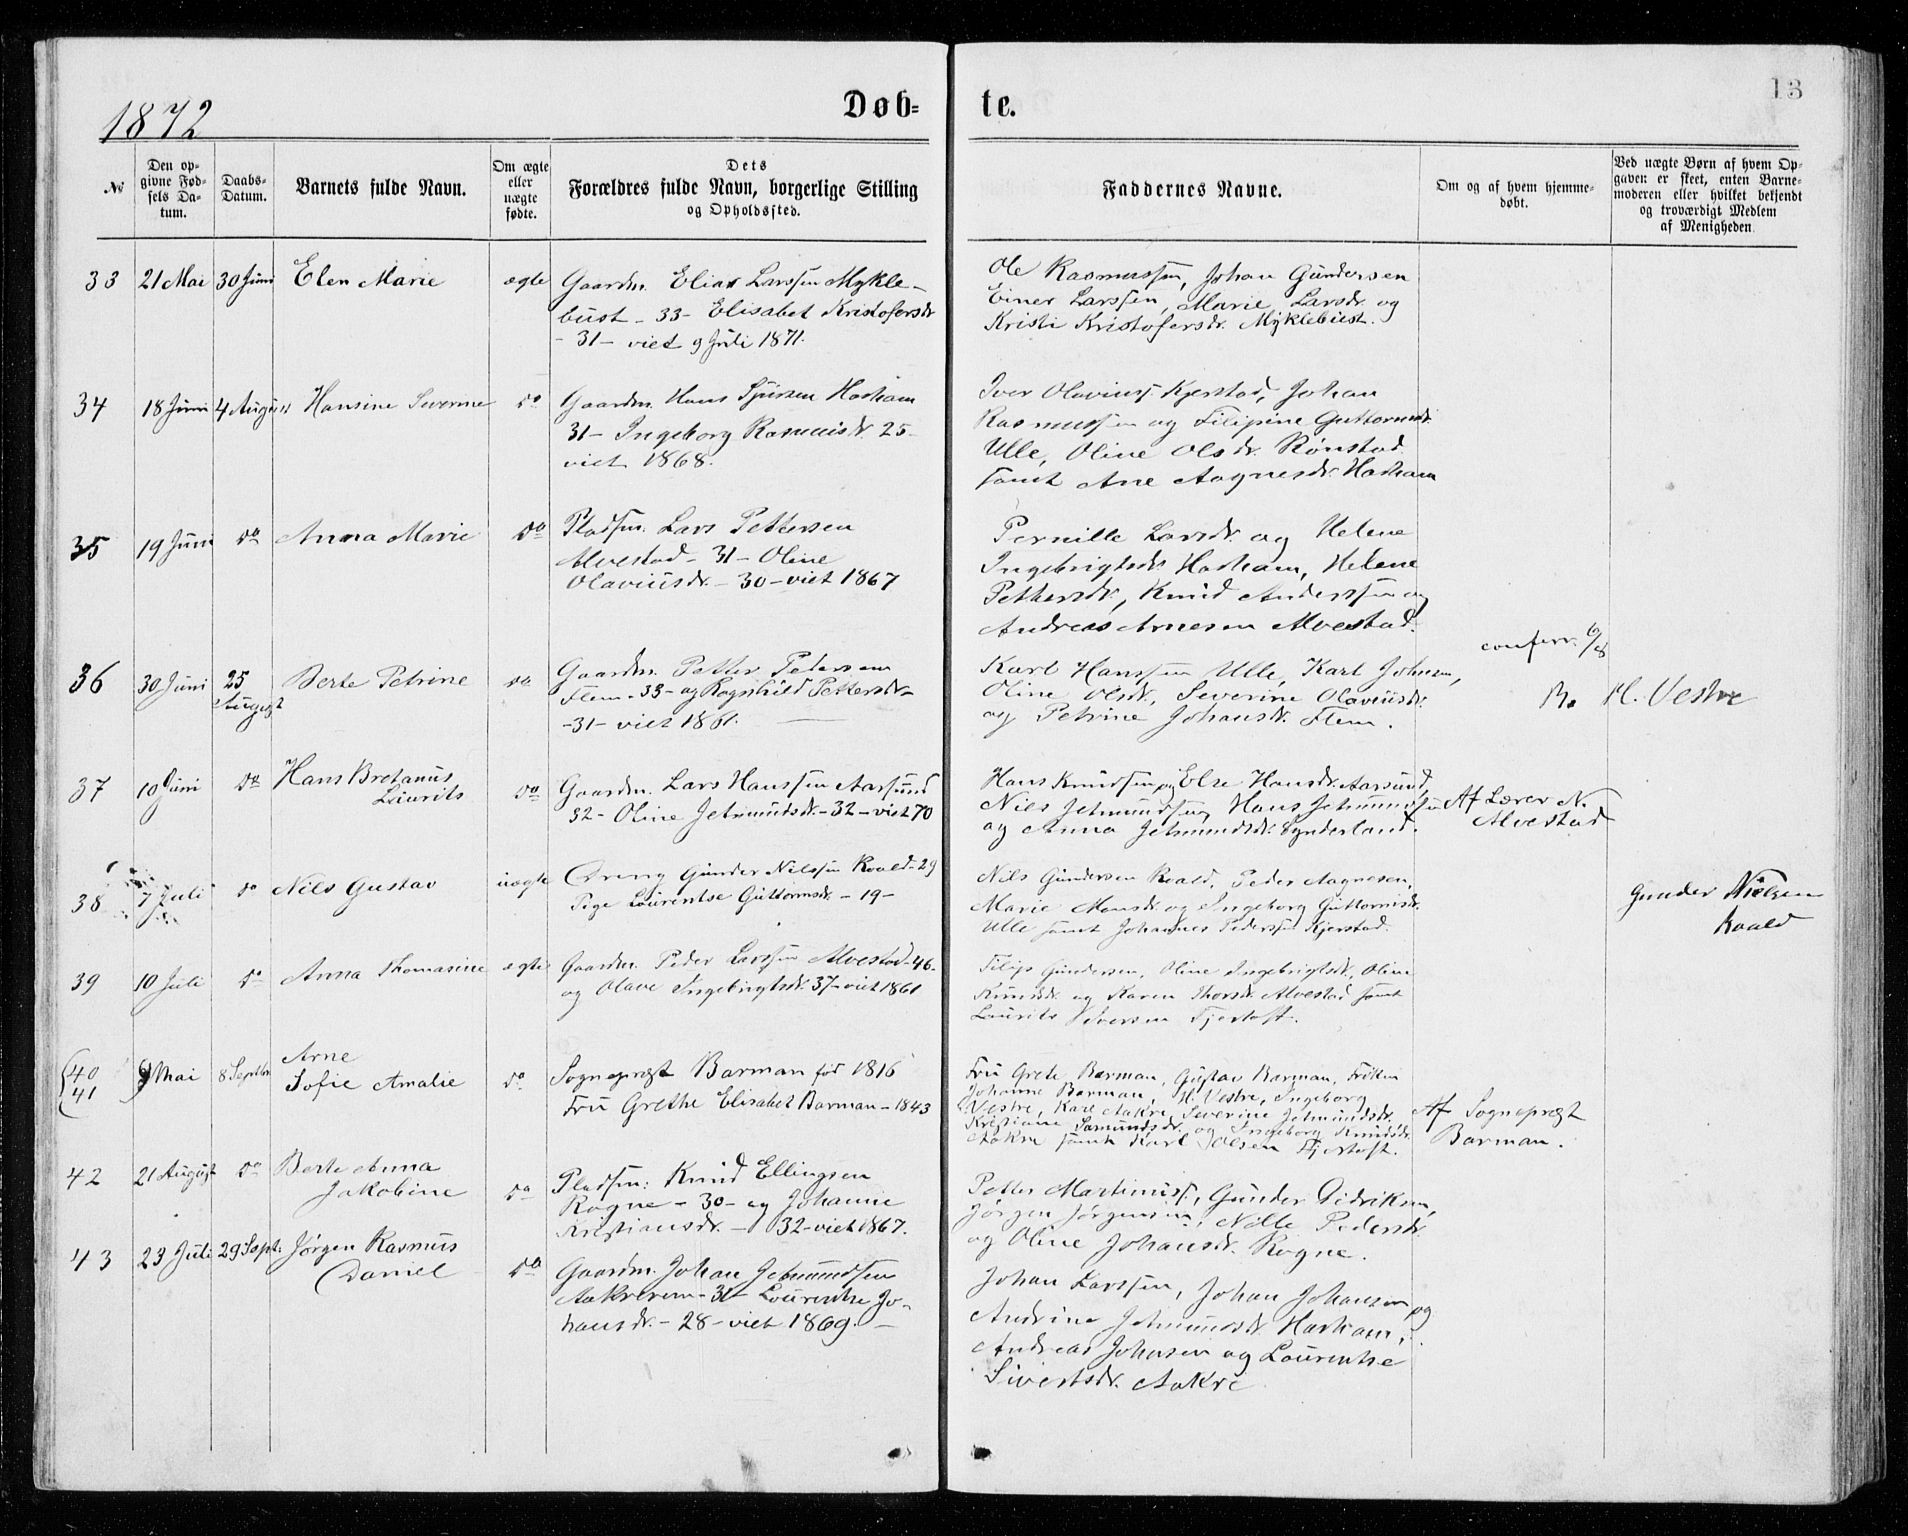 1872
Døb-
te.
13
№
Den op-
givne Fød-
sels Da-
tum.
Daabs-
Datum.
Barnets fulde Navn.
Om ægte
eller
uægte
fødte.
Dets
Forældres fulde Navn, borgerlige Stilling
og Opholdssted.
Faddernes Navne.
Om og af hvem hjemme-
døbt.
Ved uægte Børn af hvem Op-
gaven er skeet, enten Barne-
moderen eller hvilket bekjendt
og troværdigt Medlem
af Menigheden.
33 21 Mai 30 Juni Elen Marie ægte
Gaardm. Elias Larssen Mykle-
bust - 33 - Elisabet Kristofersdr
- 31 - viet 9 Juli 1871.
Ole Rasmussen, Johan Gundersen
Einer Larssen, Marie Larsdr. og
Kristi Kristofersdr. Myklebust.
34 18 Juni 4 August Hansine Severine do
Gaardm. Hans Sjursen Harham
31 - Ingeborg Rasmusdr. 25 -
viet 1868.
Iver Olaviuss. Kjerstad, Johan
Rasmussen og Filipine Guttormsdr.
Ulle, Oline Olsdr. Rønstad
samt Ane Aagnesdr. Harham
35 19 Juni do Anna Marie do
Pladsm. Lars Pettersen
Alvestad - 31 - Oline
Olaviusdr. - 30 - viet 1867
Pernille Larsdr. og Helene
Ingebrigtsdr. Harham, Helene
Pettersdr., Knud Anderssen og
Andreas Arnesen Alvestad.
36 30 Juni 25
August
Berte Petrine do
Gaardm. Petter Petersen
Flem - 33 - og Ragnhild Pettersdr.
- 31 - viet 1861.
Karl Hanssen Ulle, Karl Johnsen,
Oline Olsdr., Severine Olaviusdr.
og Petrine Johansdr. Flem.
conferr. 6/8
B. H. Vestre
37 10 Juni do Hans Bretanus
Laurits
do
Gaardm. Lars Hanssen Aarsund
32 - Oline Jetmundsdr. - 32 - viet 70
Hans Knudsen og Else Hansdr. Aarsund,
Nils Jetmundsen, Hans Jetmundsen
og Anna Jetmundsdr. Synderland.
Af Lærer N.
Alvestad
38 7 Juli do Nils Gustav uægte
Dreng Gunder Nilssen Roald - 29
Pige Laurentse Guttormsdr. - 19 -
Nils Gundersen Roald, Peder Aagnesen,
Marie Monsdr. og Ingeborg Guttormsdr.
Ulle samt Johannes Pederssen Kjerstad.
Gunder Nielsen
Roald
39 10 Juli do Anna Thomasine ægte
Gaardm. Peder Larssen Alvestad - 46 -
og Olave Ingebrigtsdr. 37 - viet 1861
Filip Gundersen, Oline Ingebrigtsdr., Oline
Knudsdr. og Karen Thorsdr. Alvestad samt
Laurits Iversen Fjertoft.
40
41
9 Mai 8 Septbr
Arne
Sofie Amalie
do
Sognepræst Barman fød 1816
Fru Grethe Elisabet Barman - 1843
Fru Grete Barman, Gustav Barman, Frøken
Johanne Barman, H. Vestre, Ingeborg
Vestre, Karl Aakre, Severine Jetmundsdr.
Kristiane Samundsdr. og Ingeborg Knudsdr.
Aakre samt Karl Olsen Fjertoft.
Af Sognepræst
Barman.
42 21 August do Berte Anna
Jakobine
do
Pladsm: Knud Ellingsen
Rogne - 30 - og Johanne
Kristiansdr. - 32 - viet 1867.
Petter Martinuss., Gunder Didriksen,
Jørgen Jørgensen, Nille Pedersdr.
og Oline Johansdr. Rogne.
43 23 Juli 29 Sept. Jørgen Rasmus
Daniel
do
Gaardm. Johan Jetmundsen
Aakrerem - 31 - Laurentse Jo-
hansdr. - 28 - viet 1869. -
Johan Larssen, Johan Johansen og
Andrine Jetmundsdr. Harham,
Andreas Johnsen og Laurentse
Sivertsdr. Aakre